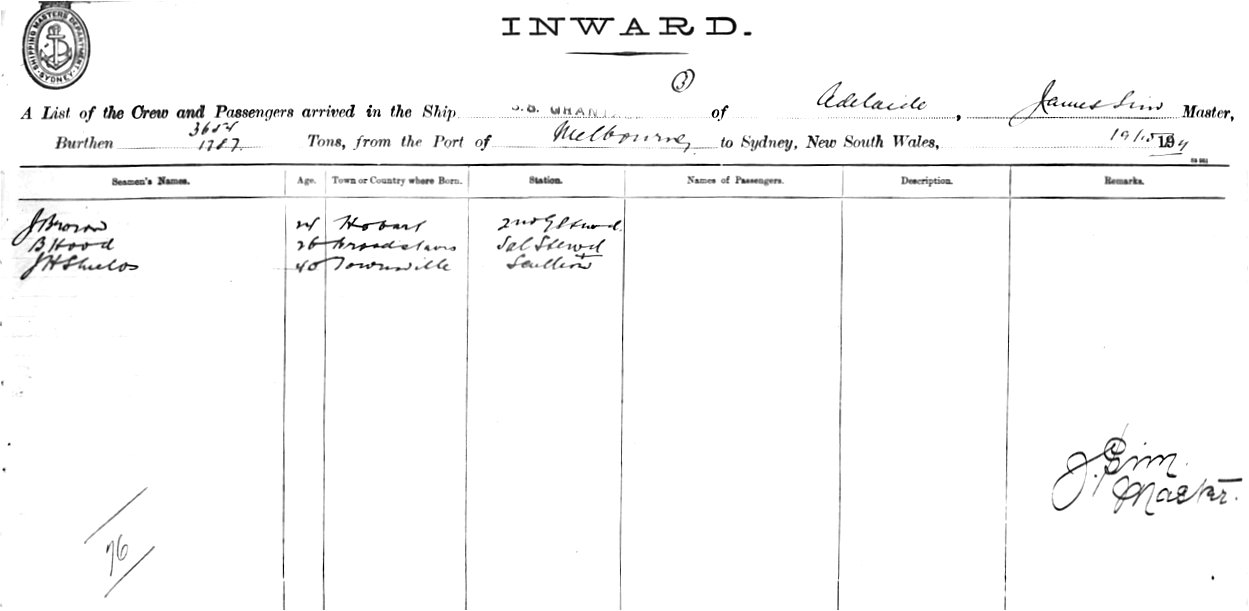 SHIPPING MASTERS DEPARTMENT
SYDNEY
INWARD.
3
A List of the Crew and Passengers arrived in the Ship S.S. GRANT of Adelaide, James Sim Master,
Burthen 3654 1787 Tons, from the Port of Melbourne to Sydney, New South Wales, 19/10 19
Seamen's Names. Age. Town or Country where Born. Station. Names of Passengers. Description. Remarks.
J Brown 24 Hobart 2nd
B Hood 26 Broadstairs Sal Stewd
J H Shields 40 Townsville Scullion
J. Sim
Master.
76